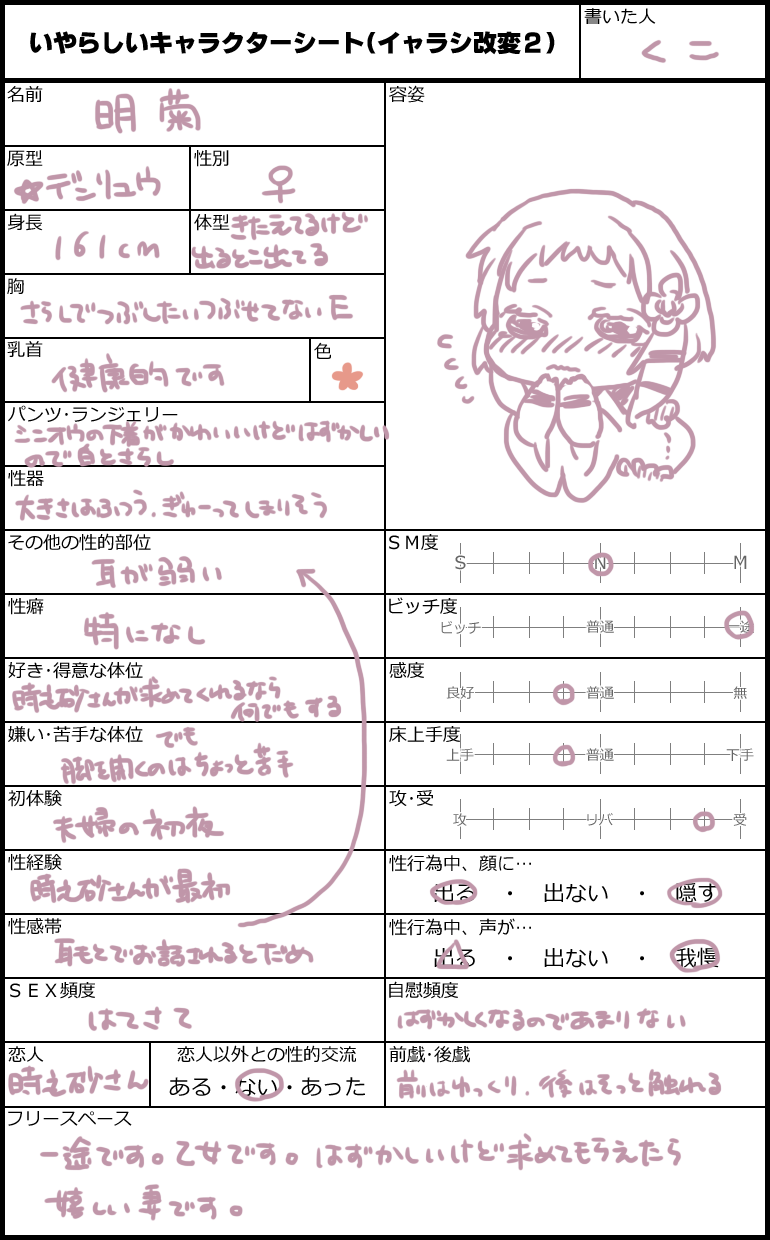 いやらしいキャラクターシート(イャラシ改変2)
書いた人
くこ
名前
明菊
容姿
原型
☆デンリュウ
性別
♀
身長
161cm
体型 きたえてるけど
出るとこ出てる
胸
さらしでつぶしたいつぶせてない E
乳首
健康的です
色
パンツ・ランジェリー
シニオウの下着がかわいいけどはずかしい
ので白とさらし
性器
大きさはふつう、ぎゅーってしまりそう
その他の性的部位
耳が弱い
SM度
S N M
性癖
特になし
ビッチ度
ビッチ 普通
好き・得意な体位
時え砂さんが求めてくれるなら
何でもする
感度
良好 普通 無
嫌い・苦手な体位 でも
脚を開くのはちょっと苦手
床上手度
上手 普通 下手
初体験
夫婦の初夜
攻・受
攻 リバ 受
性経験
時え砂さんが最初
性行為中、顔に…
出る ・ 出ない ・ 隠す
性感帯
耳もとでお話されるとだめ
性行為中、声が…
出る ・ 出ない ・ 我慢
SEX頻度
はてさて
自慰頻度
はずかしくなるのであまりない
恋人
時え砂さん
恋人以外との性的交流
ある・ない・あった
前戯・後戯
前はゆっくり、後はそっと触れる
フリースペース
一途です。乙女です。はずかしいけど求めてもらえたら
嬉しい妻です。